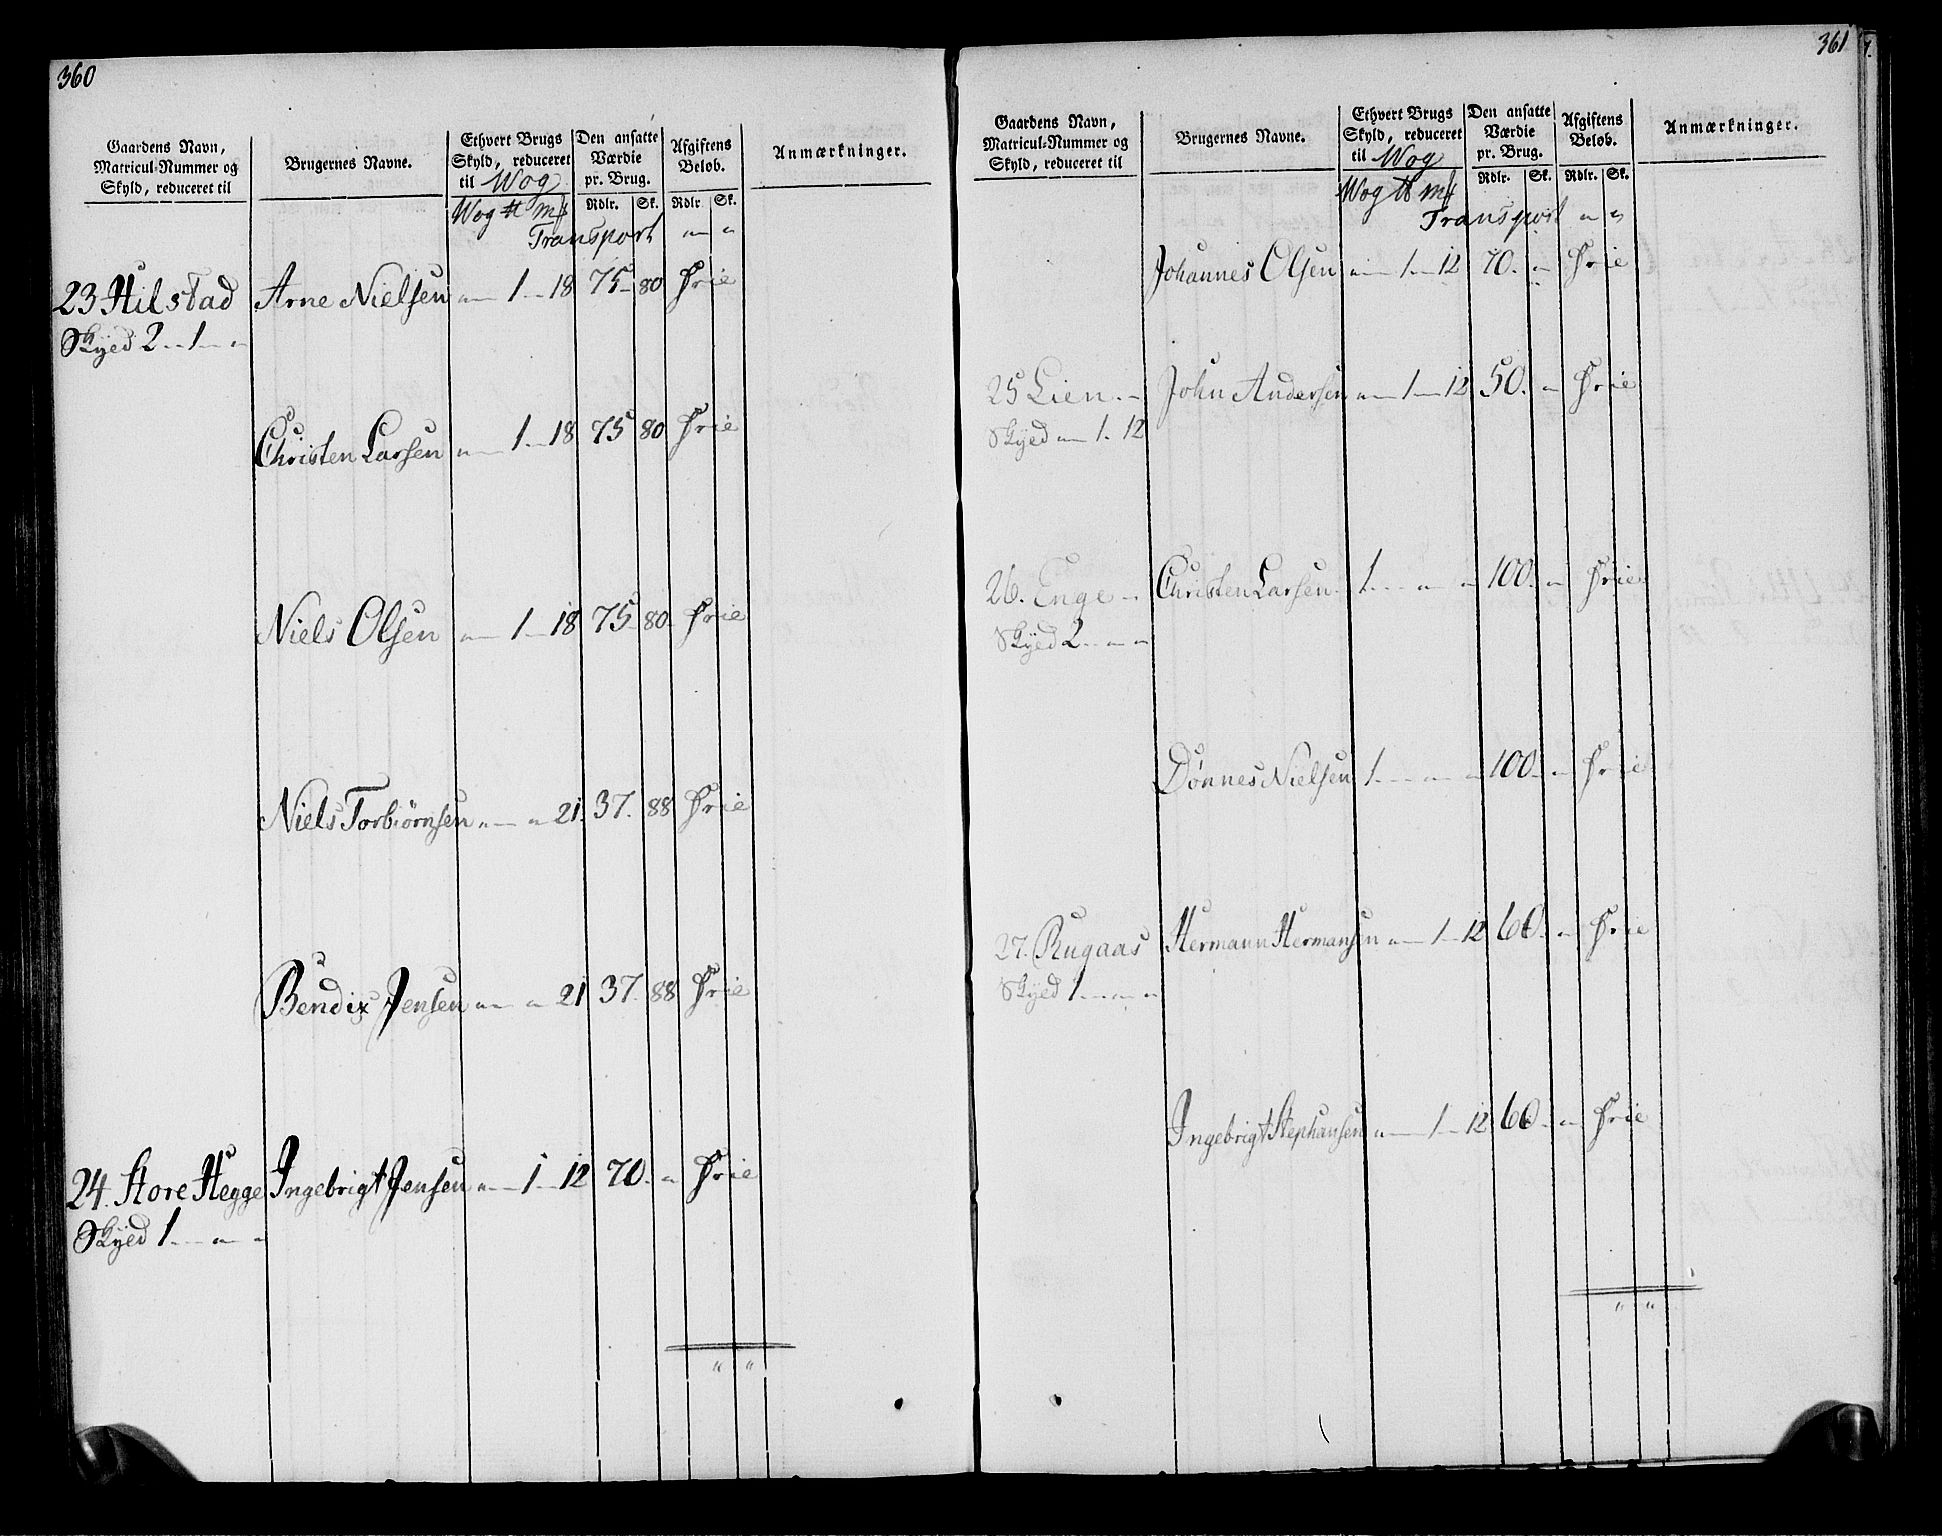 360
Gaardens Navn,
Matricul-Nummer og
Skyld, reduceret til
Brugernes Navne.
Ethvert Brugs
Skyld, reduceret
til Wog
Den ansatte
Værdie
pr. Brug.
Afgiftens
Beløb.
Anmærkninger.
Wog ℔ mk Rdlr. Sk. Rdlr. Sk.
Transport " "
23 Hilstad Arne Nielsen " 1 18 75 80 Frie
Skyed 2 1 "
Christen Larsen " 1 18 75 80 Frie
Niels Olsen " 1 18 75 80 Frie
Niels Torbiørnsen " " 21 37. 88 Frie
Bendix Jensen " " 21 37. 88 Frie
24. Store Hegge Ingebrigt Jensen " 1 12 70. " Frie
Skyed 1 " "
" "
361
Gaardens Navn,
Matricul-Nummer og
Skyld, reduceret til
Brugernes Navne.
Ethvert Brugs
Skyld, reduceret
til Wog
Den ansatte
Værdie
pr. Brug.
Afgiftens
Beløb.
Anmærkninger.
Wog ℔ mk Rdlr. Sk. Rdlr. Sk.
Transport " "
Johannes Olsen " 1 12 70. " Frie
25 Lien. John Andersen " 1 12 50. " Frie
Skyed " 1. 12
26. Enge Christen Larsen 1 " " 100. " Frie
Skyed 2 " "
Dønnes Nielsen 1 " " 100. " Frie
27. Rugaas Hermann Hermansen " 1 12 60. " Frie
Skyed 1 " "
Ingebrigt Stephansen " 1 12 60. " Frie
" "